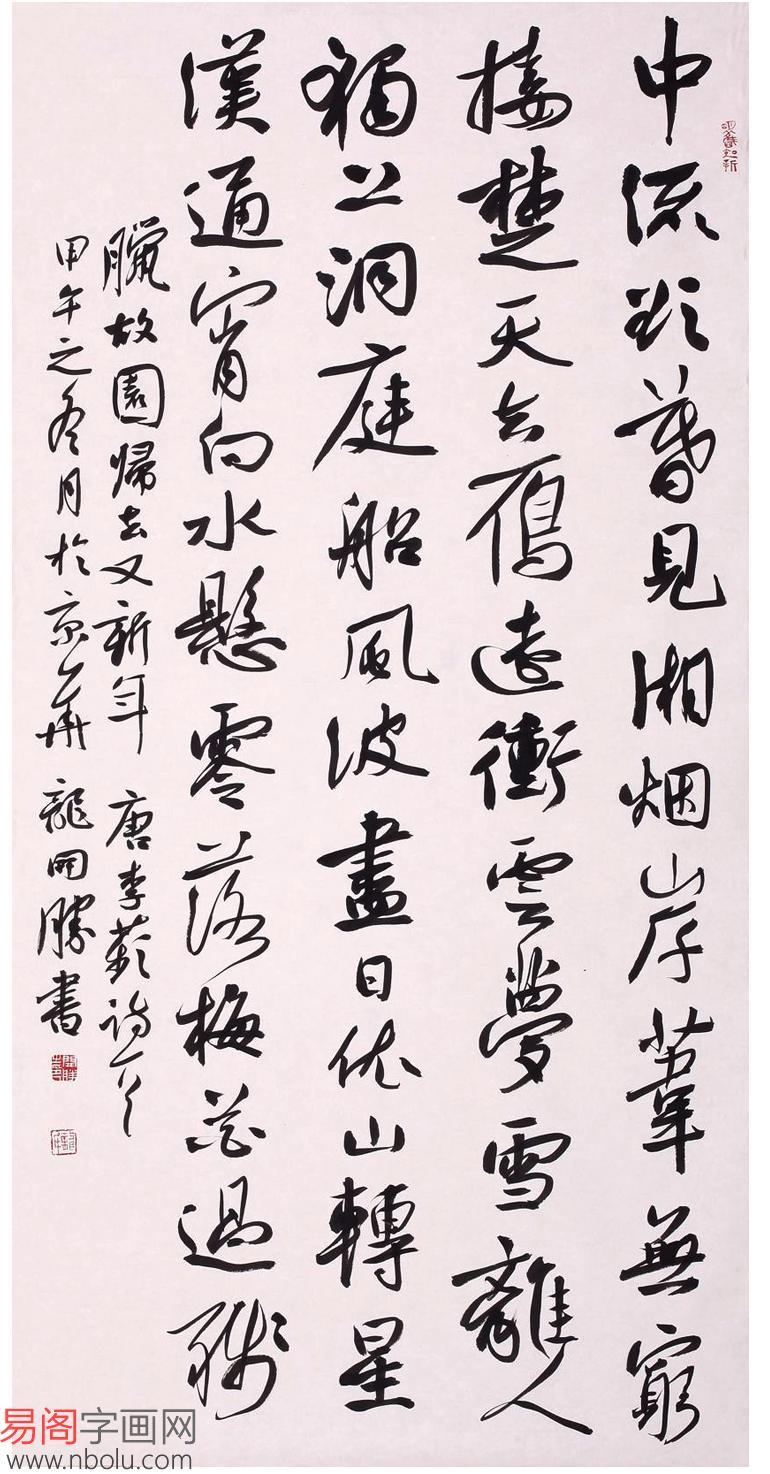 中流欲暮見湘烟岸葦無窮
接楚天去鴈遠衝雲夢雪離人
獨上洞庭船風波盡日依山轉星
漢通宵向水懸零落梅花過殘
臘故園歸去又新年 唐李頻詩一首
甲午之冬月於京華 龍開勝書
易阁字画网
www.nbolu.com